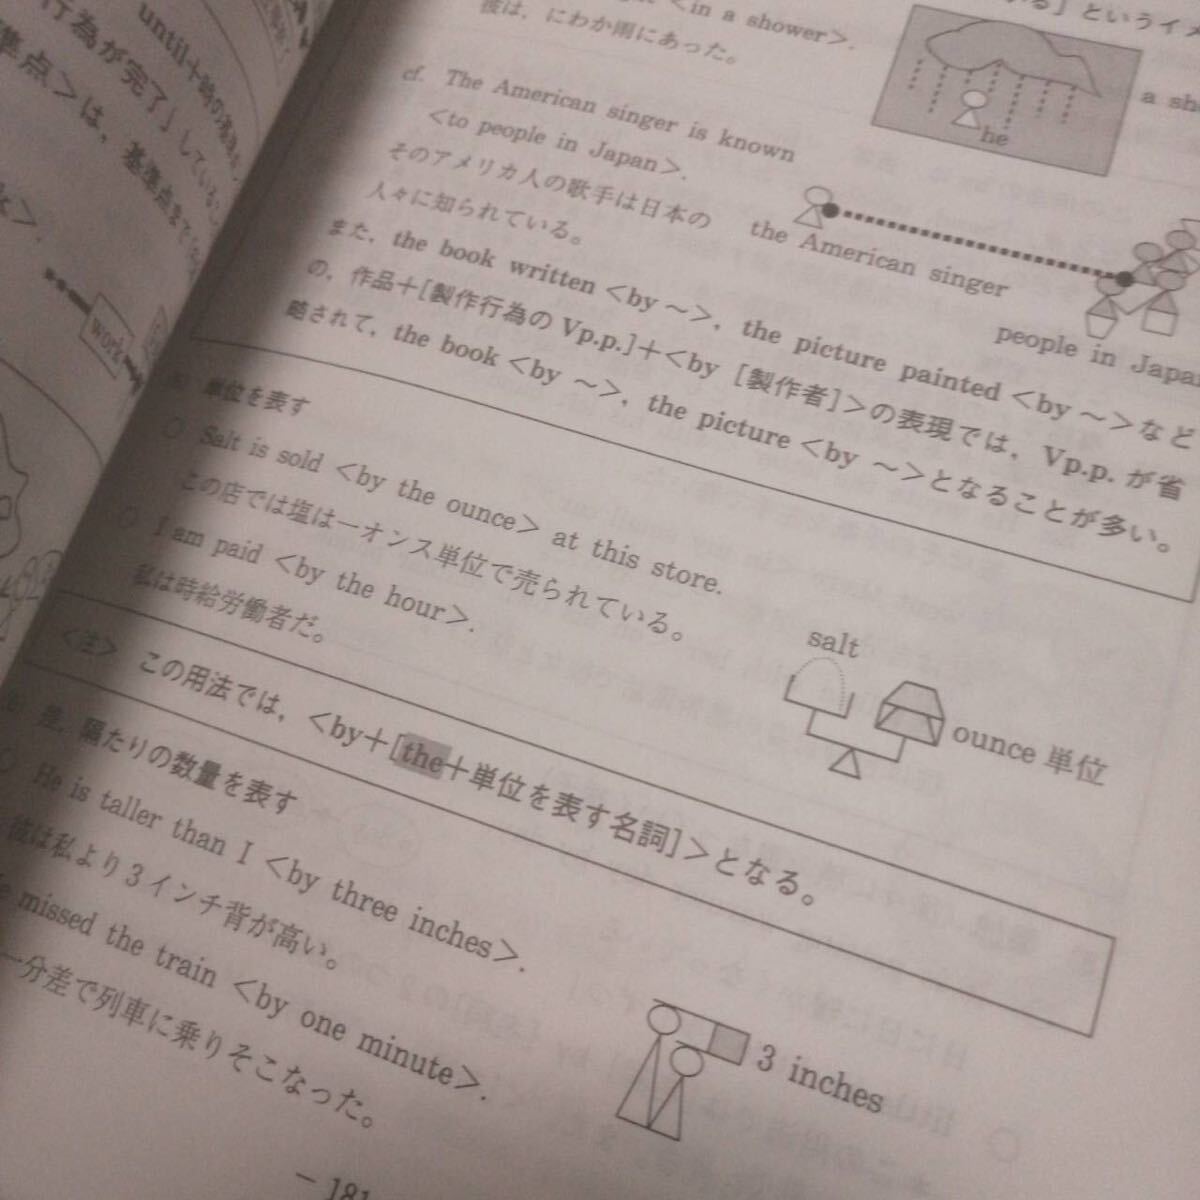 until＋時の
行為が完了」している
準点＞は，基準点まで
work
＜in a shower＞.
彼は，にわか雨にあった。
」というイメ
he
cf. The American singer is known
＜to people in Japan＞.
そのアメリカ人の歌手は日本の
人々に知られている。
the American singer
people in Japan
また，the book written＜by ～＞，the picture painted＜by ～＞など
の，作品＋[製作行為の Vp.p.]＋＜by [製作者]＞の表現では，Vp.p. が省
略されて，the book＜by ～＞，the picture＜by ～＞となることが多い。
単位を表す
○ Salt is sold ＜by the ounce＞ at this store.
この店では塩は一オンス単位で売られている。
○ I am paid ＜by the hour＞.
私は時給労働者だ。
salt
ounce 単位
＜注＞ この用法では，＜by＋[the＋単位を表す名詞]＞となる。
差，隔たりの数量を表す
○ He is taller than I ＜by three inches＞.
彼は私より3インチ背が高い。
missed the train ＜by one minute＞.
一分差で列車に乗りそこなった。
3 inches
－181